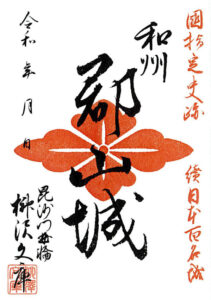 國指定史跡
續日本百名城
和州
郡山城
毘沙門曲輪
柳沢文庫
令和 年 月 日